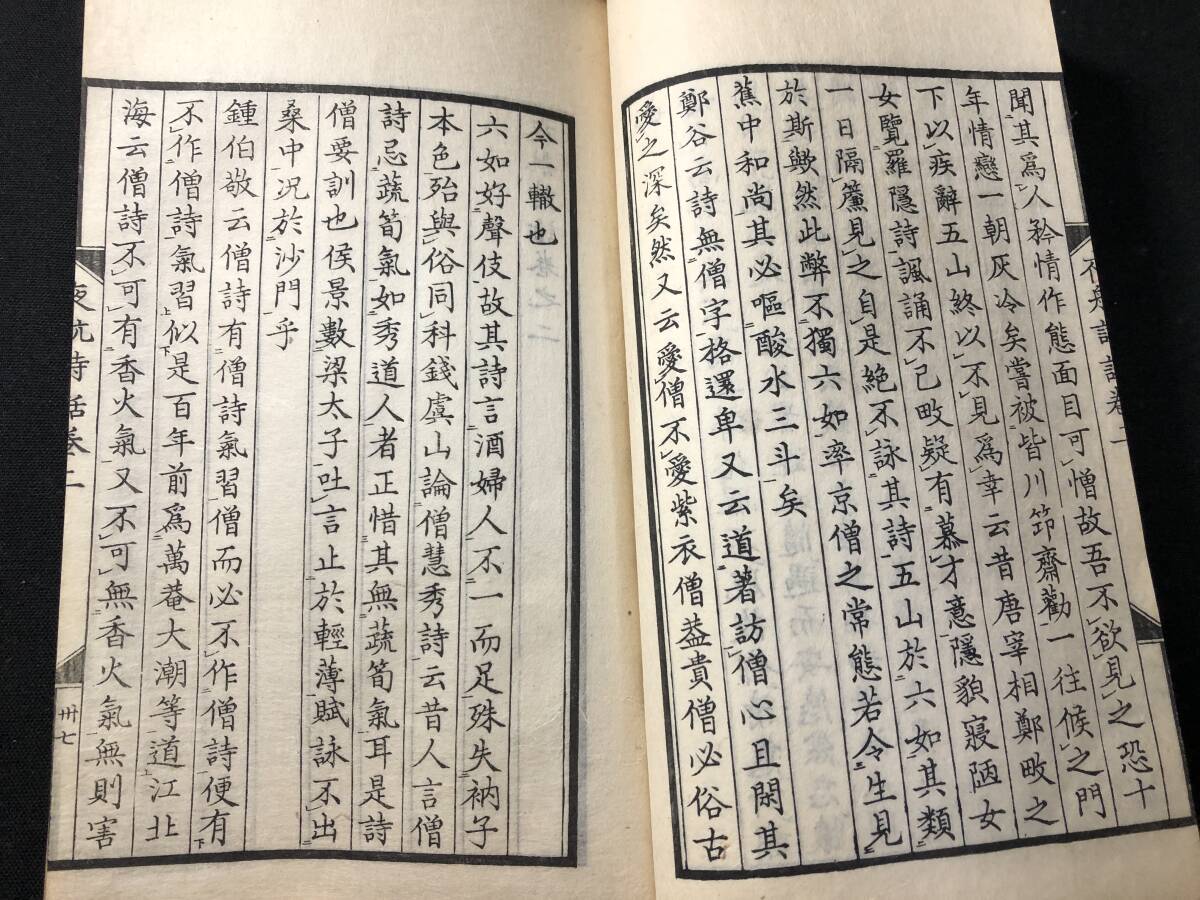 聞其爲人矜情作態面目可憎故吾不欲見之恐十
年情戀一朝灰冷矣嘗被皆川節齋勸一往候之門
下以疾辭五山終以不見爲幸云昔唐宰相鄭畋之
女覽羅隱詩諷誦不已畋疑有慕才意隱貌寢陋女
一日隔簾見之自是絕不詠其詩五山於六如其類
於斯歟然此弊不獨六如率京僧之常態若令生見
蕉中和尚其必嘔酸水三斗矣
鄭谷云詩無僧字格還卑又云道著訪僧心且閑其
愛之深矣然又云愛僧不愛紫衣僧葢貴僧必俗古
今一轍也
六如好聲伎故其詩言酒婦人不一而足殊失衲子
本色殆與俗同科錢虞山論僧慧秀詩云昔人言僧
詩忌蔬筍氣如秀道人者正惜其無蔬筍氣耳是詩
僧要訓也侯景數梁太子吐言止於輕薄賦詠不出
桑中況於沙門乎
鍾伯敬云僧詩有僧詩氣習僧而必不作僧詩便有
不作僧詩氣習似是百年前爲萬菴大潮等道江北
海云僧詩不可有香火氣又不可無香火氣無則害
夜航詩話卷二
卅七